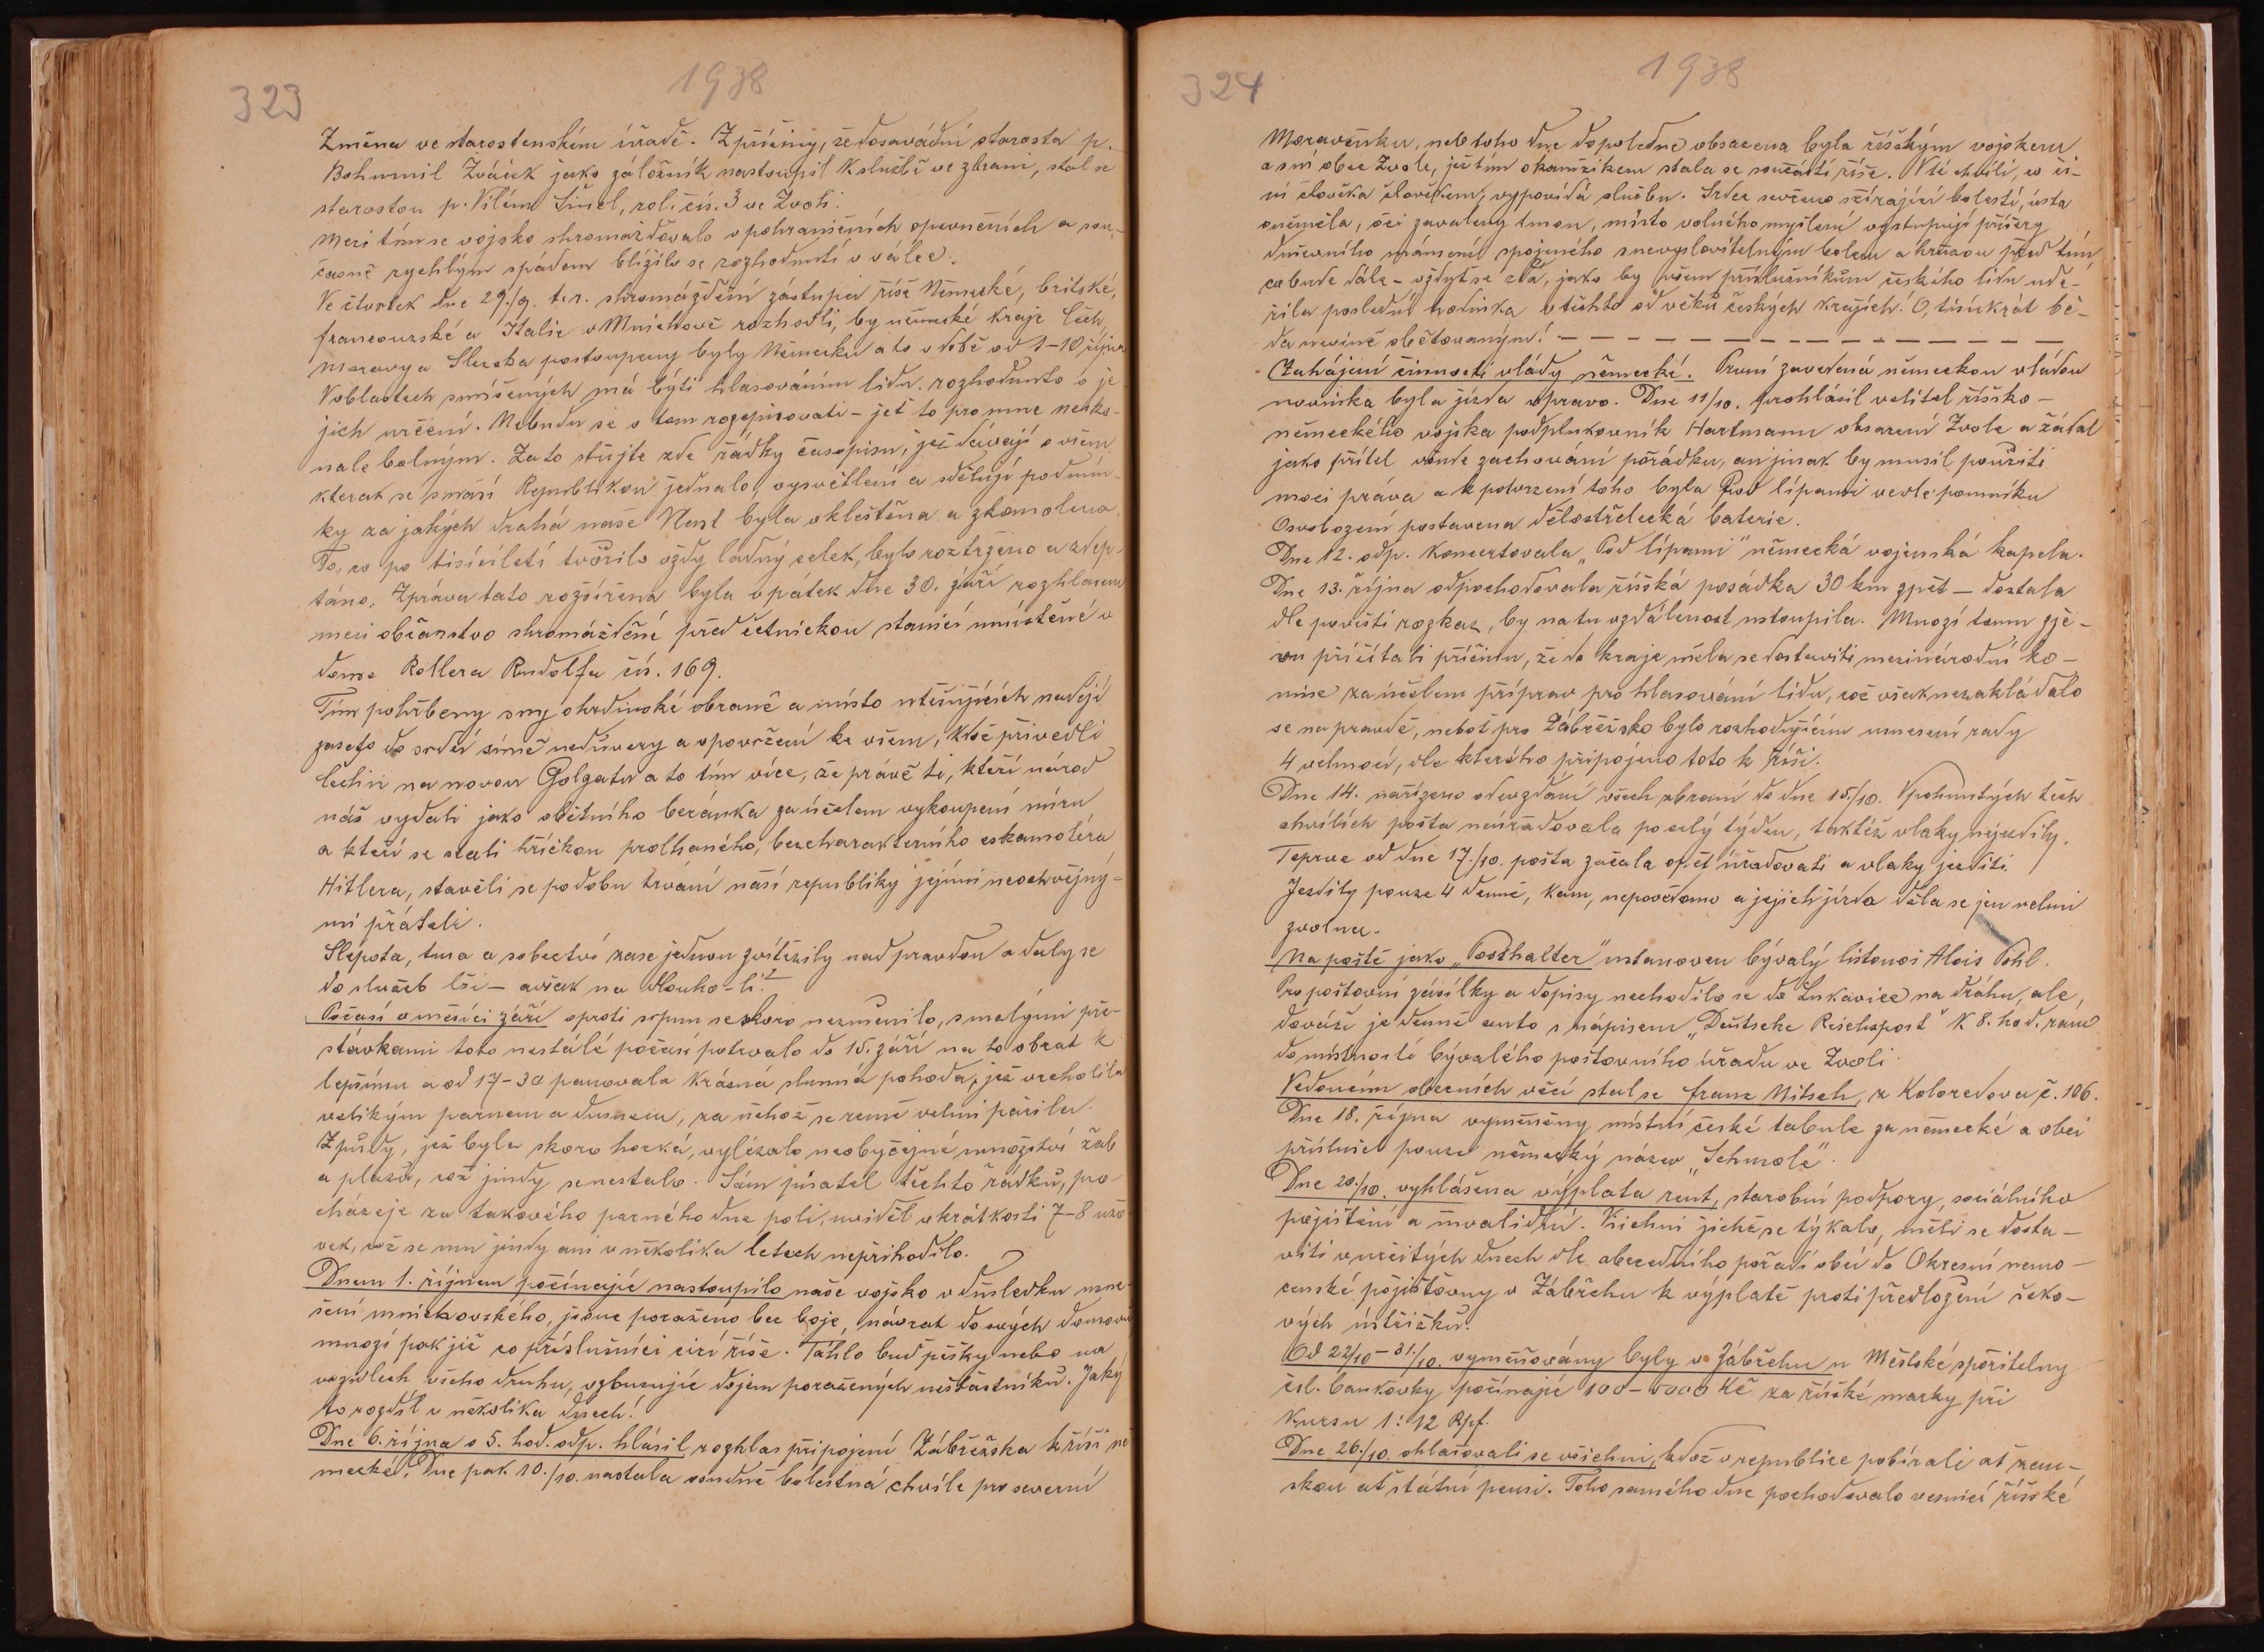 323
1938
Změna ve starostenském úřadě. Z příčiny, že dosavádní starosta p.
Bohumil Žváček jako záložník nastoupil k službě ve zbrani, stal se
starostou p. Vilém Šincl, rol. čís. 3 ve Zvoli.
Mezi tím se vojsko shromažďovalo v pohraničních opevněních a sou-
časně rychlým spádem blížilo se rozhodnutí o válce.
Ve čtvrtek dne 29./9. t.r. shromáždění zástupci říše Německé, britské,
francouzské a Italie v Mnichově rozhodli, by německé kraje Čech,
Moravy a Slezska postoupeny byly Německu a to v době od 1-10 října
V oblastech smíšených má býti hlasováním lidu rozhodnuto o je-
jich určení. Nebudu se o tom rozepisovati - jeť to pro mne nesko-
nale bolným. Za to stůjte zde řádky časopisu, jež dávají o všem
kterak se s naší Republikou jednalo, vysvětlení a sdělují podmín-
ky za jakých drahá naše Vlast byla okleštěna a zkomolena.
To, co po tisíciletí tvořilo vždy ladný celek, bylo roztrženo a zdep-
táno. Zpráva tato rozšířena byla v pátek dne 30. září rozhlasem
mezi občanstvo shromážděné před četnickou stanicí umístěné v
domě Rollera Rudolfa čís. 169.
Tím pohřbeny sny o hrdinské obraně a místo utěšujících nadějí
zaseto do srdcí símě nedůvěry a opovržení ke všem, kdož přivedli
Čechii na novou Golgatu a to tím více, že právě ti, kteří národ
náš vydali jako obětního beránka za účelem vykoupení míru
a kteří se stali hříčkou prolhaného, bezcharakterního eskamotéra
Hitlera, stavěli se po dobu trvání naší republiky jejími neochvějný-
mi přáteli.
Slepota, tma a sobectví zase jednou zvítězily nad pravdou a daly se
do služeb lži - avšak na dlouho-li?
Počasí v měsíci září oproti srpnu se skoro nezměnilo, s malými pře-
stávkami toto nestálé počasí potrvalo do 15. září na to obrat k
lepšímu a od 17-30 panovala krásná slunná pohoda, jež vrcholila
velikým parnem a dusnem, za něhož se země velmi pářila.
Z půdy, jež byla skoro horká, vylézalo neobyčejné množství žab
a plazů, což jindy se nestalo. Sám pisatel těchto řádků, pro-
cházeje za takového parného dne poli, uviděl v krátkosti 7-8 užo-
vek, což se mu jindy ani v několika letech nepřihodilo.
Dnem 1. říjnem počínajíc nastoupilo naše vojsko v důsledku usne-
šení mnichovského, jsouc poraženo bez boje, návrat do svých domovů
mnozí pak již co příslušníci cizí říše. Táhlo buď pěšky nebo na
vozidlech všeho druhu, vzbuzujíc dojem poražených nešťastníků. Jaký
to rozdíl v několika dnech!
Dne 6. října o 5. hod. odp. hlásil rozhlas připojení Zábřežska k říši ně-
mecké. Dne pak 10./10. nastala osudně bolestná chvíle pro severní
324
1938
Moravěnku, neb toho dne dopoledne obsazena byla říšským vojskem
a s ní obec Zvole, jež tím okamžikem stala se součástí říše. V té chvíli, co či-
ní člověka člověkem, vypovídá službu. Srdce sevřeno svírající bolestí, ústa
oněměla, oči zavaleny tmou, místo volného myšlení vystupují příšery
duševního mámení spojeného s nevyslovitelným bolem a hrůzou před tím
co bude dále - vždyť se zdá, jako by všem příslušníkům českého lidu ude-
řila poslední hodinka v těchto od věků českých krajích! O, tisíckrát bě-
da nevinně obětovaným! - - - - - - - - - - - - - - - -
Zahájení činnosti vlády německé. První zavedená německou vládou
novinka byla jízda vpravo. Dne 11/10. prohlásil velitel říšsko-
německého vojska podplukovník Hartmann obsazení Zvole a žádal
jako přítel všude zachování pořádku, an jinak by musil použíti
moci práva a k potvrzení toho byla Pod lípami vedle pomníku
Osvobození postavena dělostřelecká baterie.
Dne 12. odp. koncertovala „Pod lípami" německá vojenská kapela.
Dne 13. října odpochodovala říšská posádka 30 km zpět - dostala
dle pověsti rozkaz, by na tu vzdálenost ustoupila. Mnozí tomu zje-
vu přičítali příčinu, že do kraje měla se dostaviti mezinárodní ko-
mise za účelem příprav pro hlasování lidu, což však nezakládalo
se na pravdě, neboť pro Zábřežsko bylo rozhodujícím usnesení rady
4 velmocí, dle kterého připojeno toto k Říši.
Dne 14. nařízeno odevzdání všech zbraní do dne 15./10. V pohnutých těch
chvílích pošta neúřadovala po celý týden, taktéž vlaky nejezdily.
Teprve od dne 17./10. pošta začala opět úřadovati a vlaky jezditi.
Jezdily pouze 4 denně, kam, nepovědomo a jejich jízda děla se jen velmi
zvolna.
Na poště jako „Posthalter" ustanoven bývalý listonoš Alois Pohl.
Pro poštovní zásilky a dopisy nechodilo se do Lukavice na dráhu, ale,
dováží je denně auto s nápisem „Deutsche Reichspost" k 8. hod. ranní
do místností bývalého poštovního úřadu ve Zvoli.
Vedoucím obecních věcí stal se Franz Nitsch, z Koloredova č. 106.
Dne 18. října vyměněny místní české tabule za německé a obci
přísluší pouze německý název „Schmole".
Dne 20./10. vyhlášena výplata rent, starobní podpory, sociálního
pojištění a invalidní. Všichni jichž se týkalo, měli se dosta-
viti v určitých dnech dle abecedního pořadí obcí do Okresní nemo-
censké pojišťovny v Zábřehu k výplatě proti předložení šeko-
vých ústřižků.
Od 22/10 - 31./10. vyměňovány byly v Zábřehu u Městské spořitelny
čsl. bankovky počínajíc 100-5000 Kč za říšské marky při
kursu 1:12 Rpf.
Dne 26./10. ohlašovali se všichni, kdož v republice pobírali ať zem-
skou ať státní pensi. Toho samého dne pochodovalo vesnicí říšské